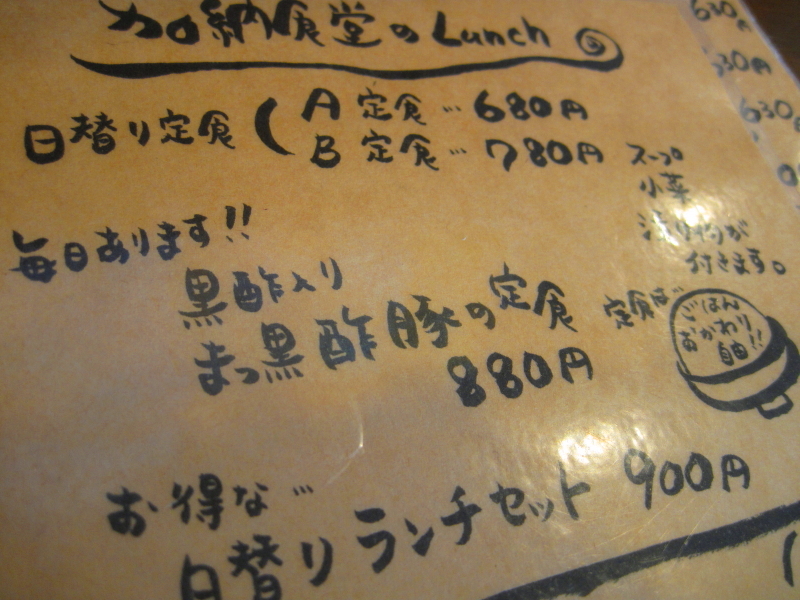 加納食堂のLunch
日替り定食 ( A 定食… 680円
B 定食… 780円
スープ
小菜
漬け物が
付きます。
毎日あります!!
黒酢入り
まっ黒酢豚の定食
880円
定食は
ごはん
おかわり
自由!!
お得な…
日替りランチセット 900円
630円
530円
630